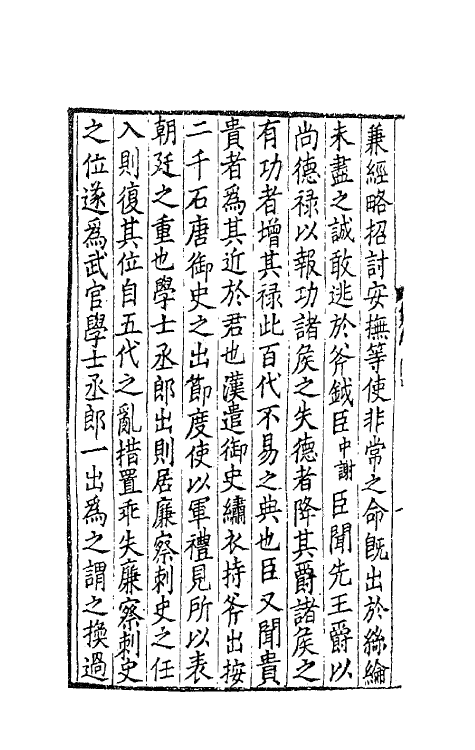 兼經略招討安撫等使非常之命旣出於絲綸
未盡之誠敢逃於斧鉞臣中謝臣聞先王爵以
尚德禄以報功諸侯之失德者降其爵諸侯之
有功者增其禄此百代不易之典也臣又聞貴
貴者爲其近於君也漢遣御史繡衣持斧出按
二千石唐御史之出節度使以軍禮見所以表
朝廷之重也學士丞郎出則居廉察刺史之任
入則復其位自五代之亂措置乖失廉察刺史
之位遂爲武官學士丞郎一出爲之謂之換過